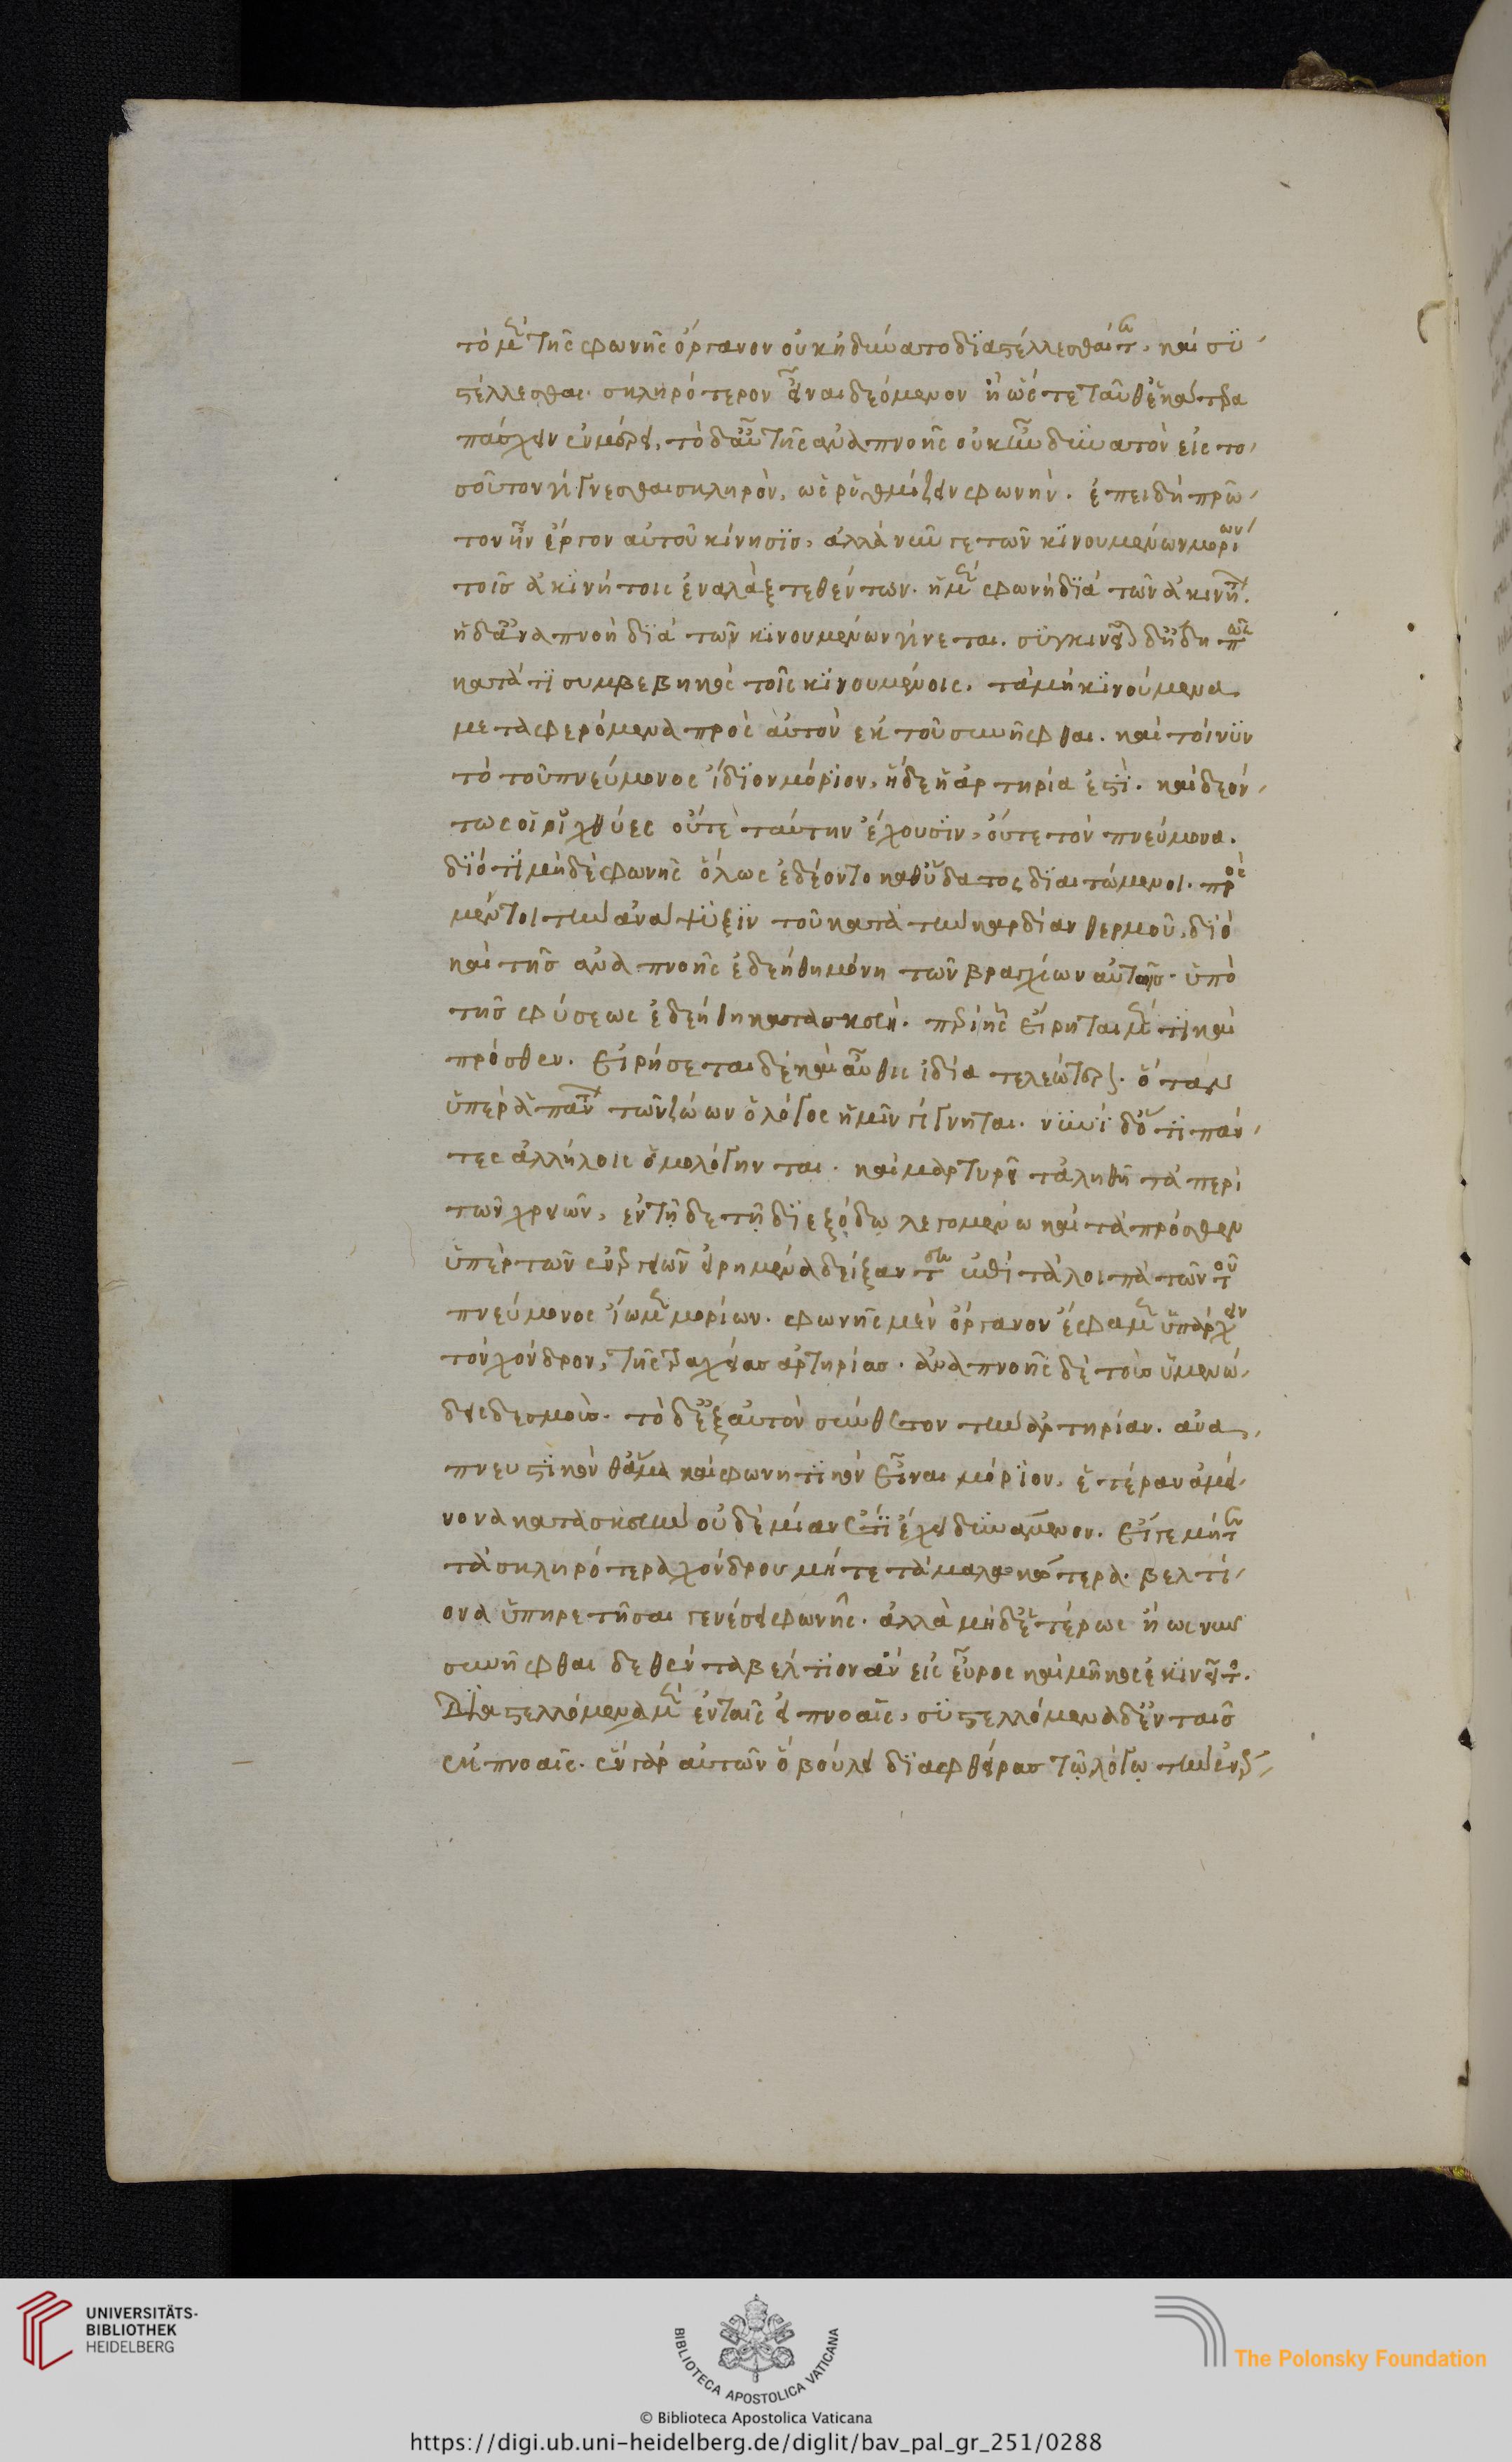 τὸ μὲν τῆς φωνῆς ὄργανον οὐκ ἠδύνατο διαστέλλεσθαί τε, καὶ συ
στέλλεσθαι. σκληρότερον εἶναι δεόμενον ἢ ὥστε ταῦθ' ἑκάτερα
πάσχειν ἐν μέρει, τὸ δ' αὖ τῆς ἀναπνοῆς οὐκ ἦν δυνατὸν εἰς το
σοῦτον γίγνεσθαι σκληρὸν, ὡς ῥυθμίζειν φωνήν. ἐπειδὴ πρῶ
τον ἦν ἔργον αὐτοῦ κίνησις, ἀλλὰ νῦν γε τῶν κινουμένων μορίων
τοῖς ἀκινήτοις ἐναλὰξ τεθέντων. ἡ μὲν φωνὴ διὰ τῶν ἀκινήτων.
ἡ δ' ἀναπνοὴ διὰ τῶν κινουμένων γίνεται. συγκινεῖται δ' ἤδη πως
κατά τι συμβεβηκὸς τοῖς κινουμένοις. τὰ μὴ κινούμενα
μεταφερόμενα πρὸς αὐτὸν ἐκ τοῦ συνῆφθαι. καὶ τοίνυν
τὸ τοῦ πνεύμονος ἴδιον μόριον, ἥδε ἡ ἀρτηρία ἐστὶ. καὶ δεόν
τως οἱ ἰχθύες οὔτε ταύτην ἔχουσιν, οὔτε τὸν πνεύμονα.
διότι μὴδὲ φωνῆς ὅλως ἐδέοντο καθ' ὕδατος διαιτώμενοι. πρὸς
μέντοι τὴν ἀνάψυξιν τοῦ κατὰ τὴν καρδίαν θερμοῦ, διὸ
καὶ τῆς ἀναπνοῆς ἐδεήθη μόνη τῶν βραγχίων αὐτοῖς ὑπὸ
τῆς φύσεως ἐδεήθη κατασκευή. περὶ ἧς εἴρηται μέν τι καὶ
πρόσθεν. εἰρήσεται δὲ καὶ αὖθις ἰδίᾳ τελεώτερον. ὅταν
ὑπὲρ ἁπάντων τῶν ζώων ὁ λόγος ἡμῖν γίγνηται. νυνὶ δ' ὅτι πάν
τες ἀλλήλοις ὁμολόγηνται. καὶ μαρτυρεῖ τἀληθῆ τὰ περὶ
τῶν χρειῶν, ἐν τῇδε τῇ διεξόδῳ λεγομένω καὶ τὰ πρόσθεν
ὑπὲρ τῶν ἐνεργειῶν εἰρημένα δείξαντες αὖθι τὰ λοιπὰ τῶν τοῦ
πνεύμονος ἴωμεν μορίων. φωνῆς μὲν ὄργανον ἔφαμεν ὑπάρχειν
τὸν χόνδρον, τῆς τραχείας ἀρτηρίας. ἀναπνοῆς δὲ τοὺς ὑμενώ
δεις δεσμοὺς. τὸ δ' ἐξ αὐτὸν σύνθετον τὴν ἀρτηρίαν. ἀνα
πνευστικὸν θ' ἅμα καὶ φωνητικὸν εἶναι μόριον, ἑτέραν ἀμεί
νονα κατασκευὴν οὐδεμίαν ἔτι ἔχειν δυνάμενον. εἴγε μήτε
τὰ σκληρότερα χόνδρου μήτε τὰ μαλακώτερα. βελτί
ονα ὑπηρετῆσαι γενέσει φωνῆς. ἀλλὰ μὴδ' ἑτέρως ἢ ὡς νῦν
συνῆφθαι δεθέντα βέλτιον ἂν εἰς εὖρος καὶ μῆκος ἐκινεῖτο.
Διαστελλόμενα μὲν ἐν ταῖς εἰσπνοαῖς, συστελλόμενα δ' ἐν ταῖς
ἐκπνοαῖς. ἓν γὰρ αὐτῶν ὃ βούλει διαφθείρας τῷ λόγῳ τὴν ἐνερ
UNIVERSITÄTS-
BIBLIOTHEK
HEIDELBERG
BIBLIOTECA APOSTOLICA VATICANA
The Polonsky Foundation
© Biblioteca Apostolica Vaticana
https://digi.ub.uni-heidelberg.de/diglit/bav_pal_gr_251/0288